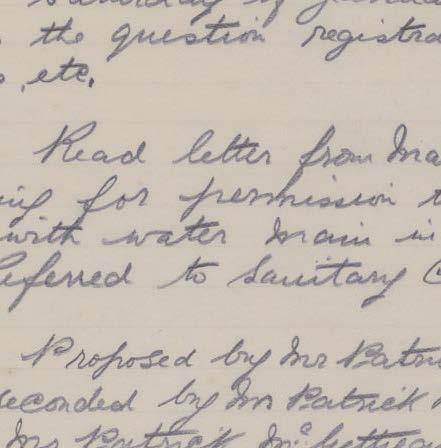 the question registra
, etc.
Read letter from Ma
ing for permission t
with water main in
eferred to Sanitary C
Proposed by Mr Patri
seconded by Mr Patrick
Mr Patrick McGettiga